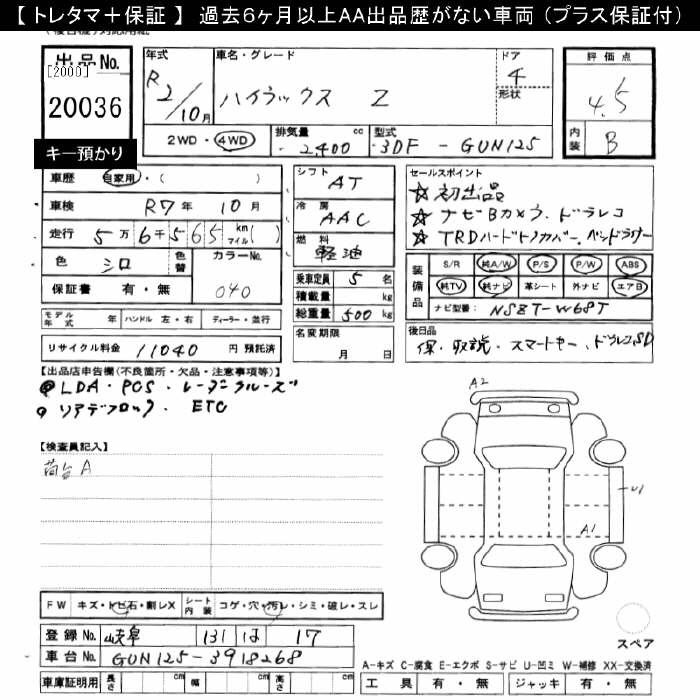 【 トレタマ＋保証 】 過去6ヶ月以上AA出品歴がない車両（プラス保証付）
出品No.
[2000]
20036
キー預かり
年式
R2/10月
車名・グレード
ハイラックス Z
ドア
4
形状
評価点
4.5
内装
B
2WD・4WD
排気量
2,400 cc
型式
3DF - GUN125
車歴 自家用・( )
車検 R7年 10月
走行 5万6千565 km マイル( )
色 シロ
色替
カラーNo.
040
保証書 有・無
シフト AT
冷房 AAC
燃料 軽油
乗車定員 5 名
積載量 kg
総重量 500 kg
名変期限
月 日
セールスポイント
☆初出品
☆ナビBカメラ. ドラレコ
☆TRDハードトノカバー. ベッドライナー
装備品
S/R 純A/W P/S P/W ABS
純TV 純ナビ 革シート 外ナビ エアB
ナビ型番: NSZT-W68T
モデル年式 年 ハンドル 左・右 ディーラー・並行
リサイクル料金 11040 円 預託済
後日品
保. 取説. スマートキー. ドラレコSD
【出品店申告欄(不良箇所・欠品・注意事項等)】
LDA・PCS・レーダークルーズ
リアデフロック. ETC
【検査員記入】
荷台A
A2
U1
A1
FW キズ・トビ石・割レX シート内装 コゲ・穴・汚レ・シミ・破レ・スレ
登録No. 岐阜 131 は 17
車台No. GUN125-3918268
車庫証明用 長さ cm 幅 cm 高さ cm
スペア
A-キズ C-腐食 E-エクボ S-サビ U-凹ミ W-補修 XX-交換済
工具 有・無 ジャッキ 有・無